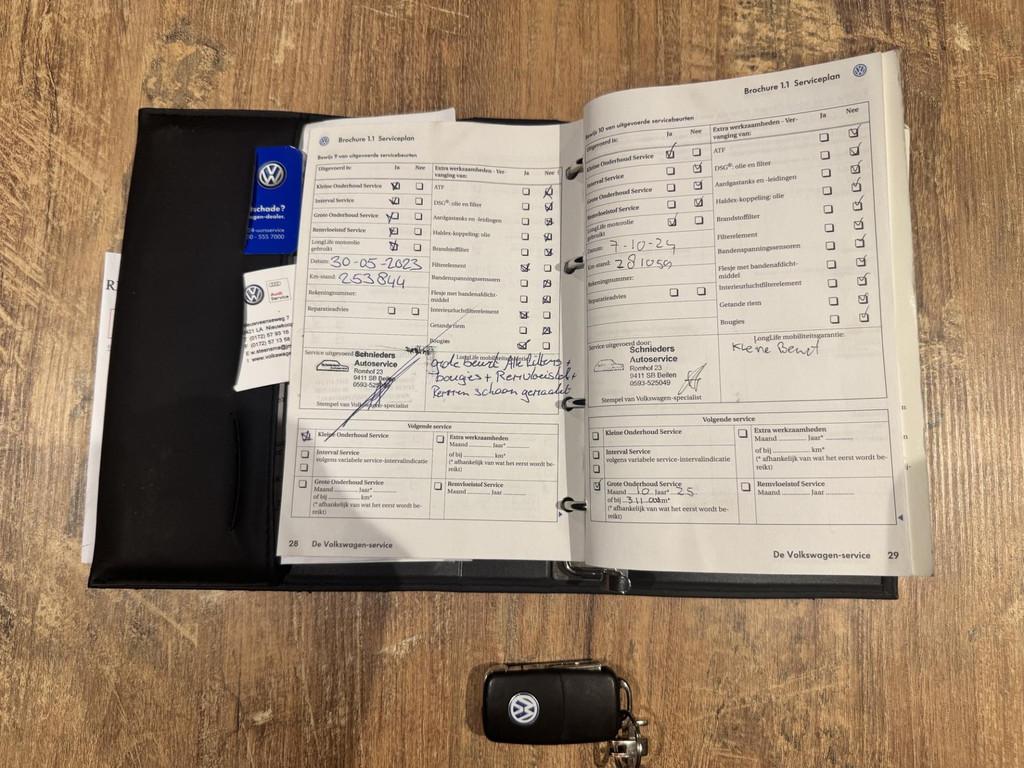 schade?
gen-dealer.
Audi
Service
Brochure 1.1 Serviceplan
Bewijs 9 van uitgevoerde servicebeurten
Uitgevoerd is: Ja Nee
Kleine Onderhoud Service
Interval Service
Grote Onderhoud Service
Remvloeistof Service
LongLife motorolie
gebruikt
Datum: 30-05-2023
Km-stand: 253844
Rekeningnummer:
Reparatieadvies
Extra werkzaamheden - Ver-
vanging van: Ja Nee
ATF
DSG®: olie en filter
Aardgastanks en -leidingen
Haldex-koppeling: olie
Brandstoffilter
Filterelement
Bandenspanningssensoren
Flesje met bandenafdicht-
middel
Interieurluchtfilterelement
Getande riem
Bougies
Service uitgevoerd
Schnieders
Autoservice
Romhof 23
9411 SB Beilen
0593-525049
Stempel van Volkswagen-specialist
LongLife mobiliteitsgarantie:
grote beurt Alle filters +
bougies + Remvloeistof +
Remmen schoon gemaakt
Volgende service
Kleine Onderhoud Service
Interval Service
volgens variabele service-intervalindicatie
Grote Onderhoud Service
Maand Jaar*
of bij km*
(* afhankelijk van wat het eerst wordt be-
reikt)
Extra werkzaamheden
Maand Jaar*
of bij km*
(* afhankelijk van wat het eerst wordt be-
reikt)
Remvloeistof Service
Maand Jaar
28 De Volkswagen-service
Brochure 1.1 Serviceplan
Bewijs 10 van uitgevoerde servicebeurten
Uitgevoerd is: Ja Nee
Kleine Onderhoud Service
Interval Service
Grote Onderhoud Service
Remvloeistof Service
LongLife motorolie
gebruikt
Datum: 7-10-24
Km-stand: 281059
Rekeningnummer:
Reparatieadvies
Extra werkzaamheden - Ver-
vanging van: Ja Nee
ATF
DSG®: olie en filter
Aardgastanks en -leidingen
Haldex-koppeling: olie
Brandstoffilter
Filterelement
Bandenspanningssensoren
Flesje met bandenafdicht-
middel
Interieurluchtfilterelement
Getande riem
Bougies
Service uitgevoerd door:
Schnieders
Autoservice
Romhof 23
9411 SB Beilen
0593-525049
Stempel van Volkswagen-specialist
LongLife mobiliteitsgarantie:
Kleine Beurt
Volgende service
Kleine Onderhoud Service
Interval Service
volgens variabele service-intervalindicatie
Grote Onderhoud Service
Maand 10 Jaar* 25
of bij 311.000 km*
(* afhankelijk van wat het eerst wordt be-
reikt)
Extra werkzaamheden
Maand Jaar*
of bij km*
(* afhankelijk van wat het eerst wordt be-
reikt)
Remvloeistof Service
Maand Jaar
De Volkswagen-service 29